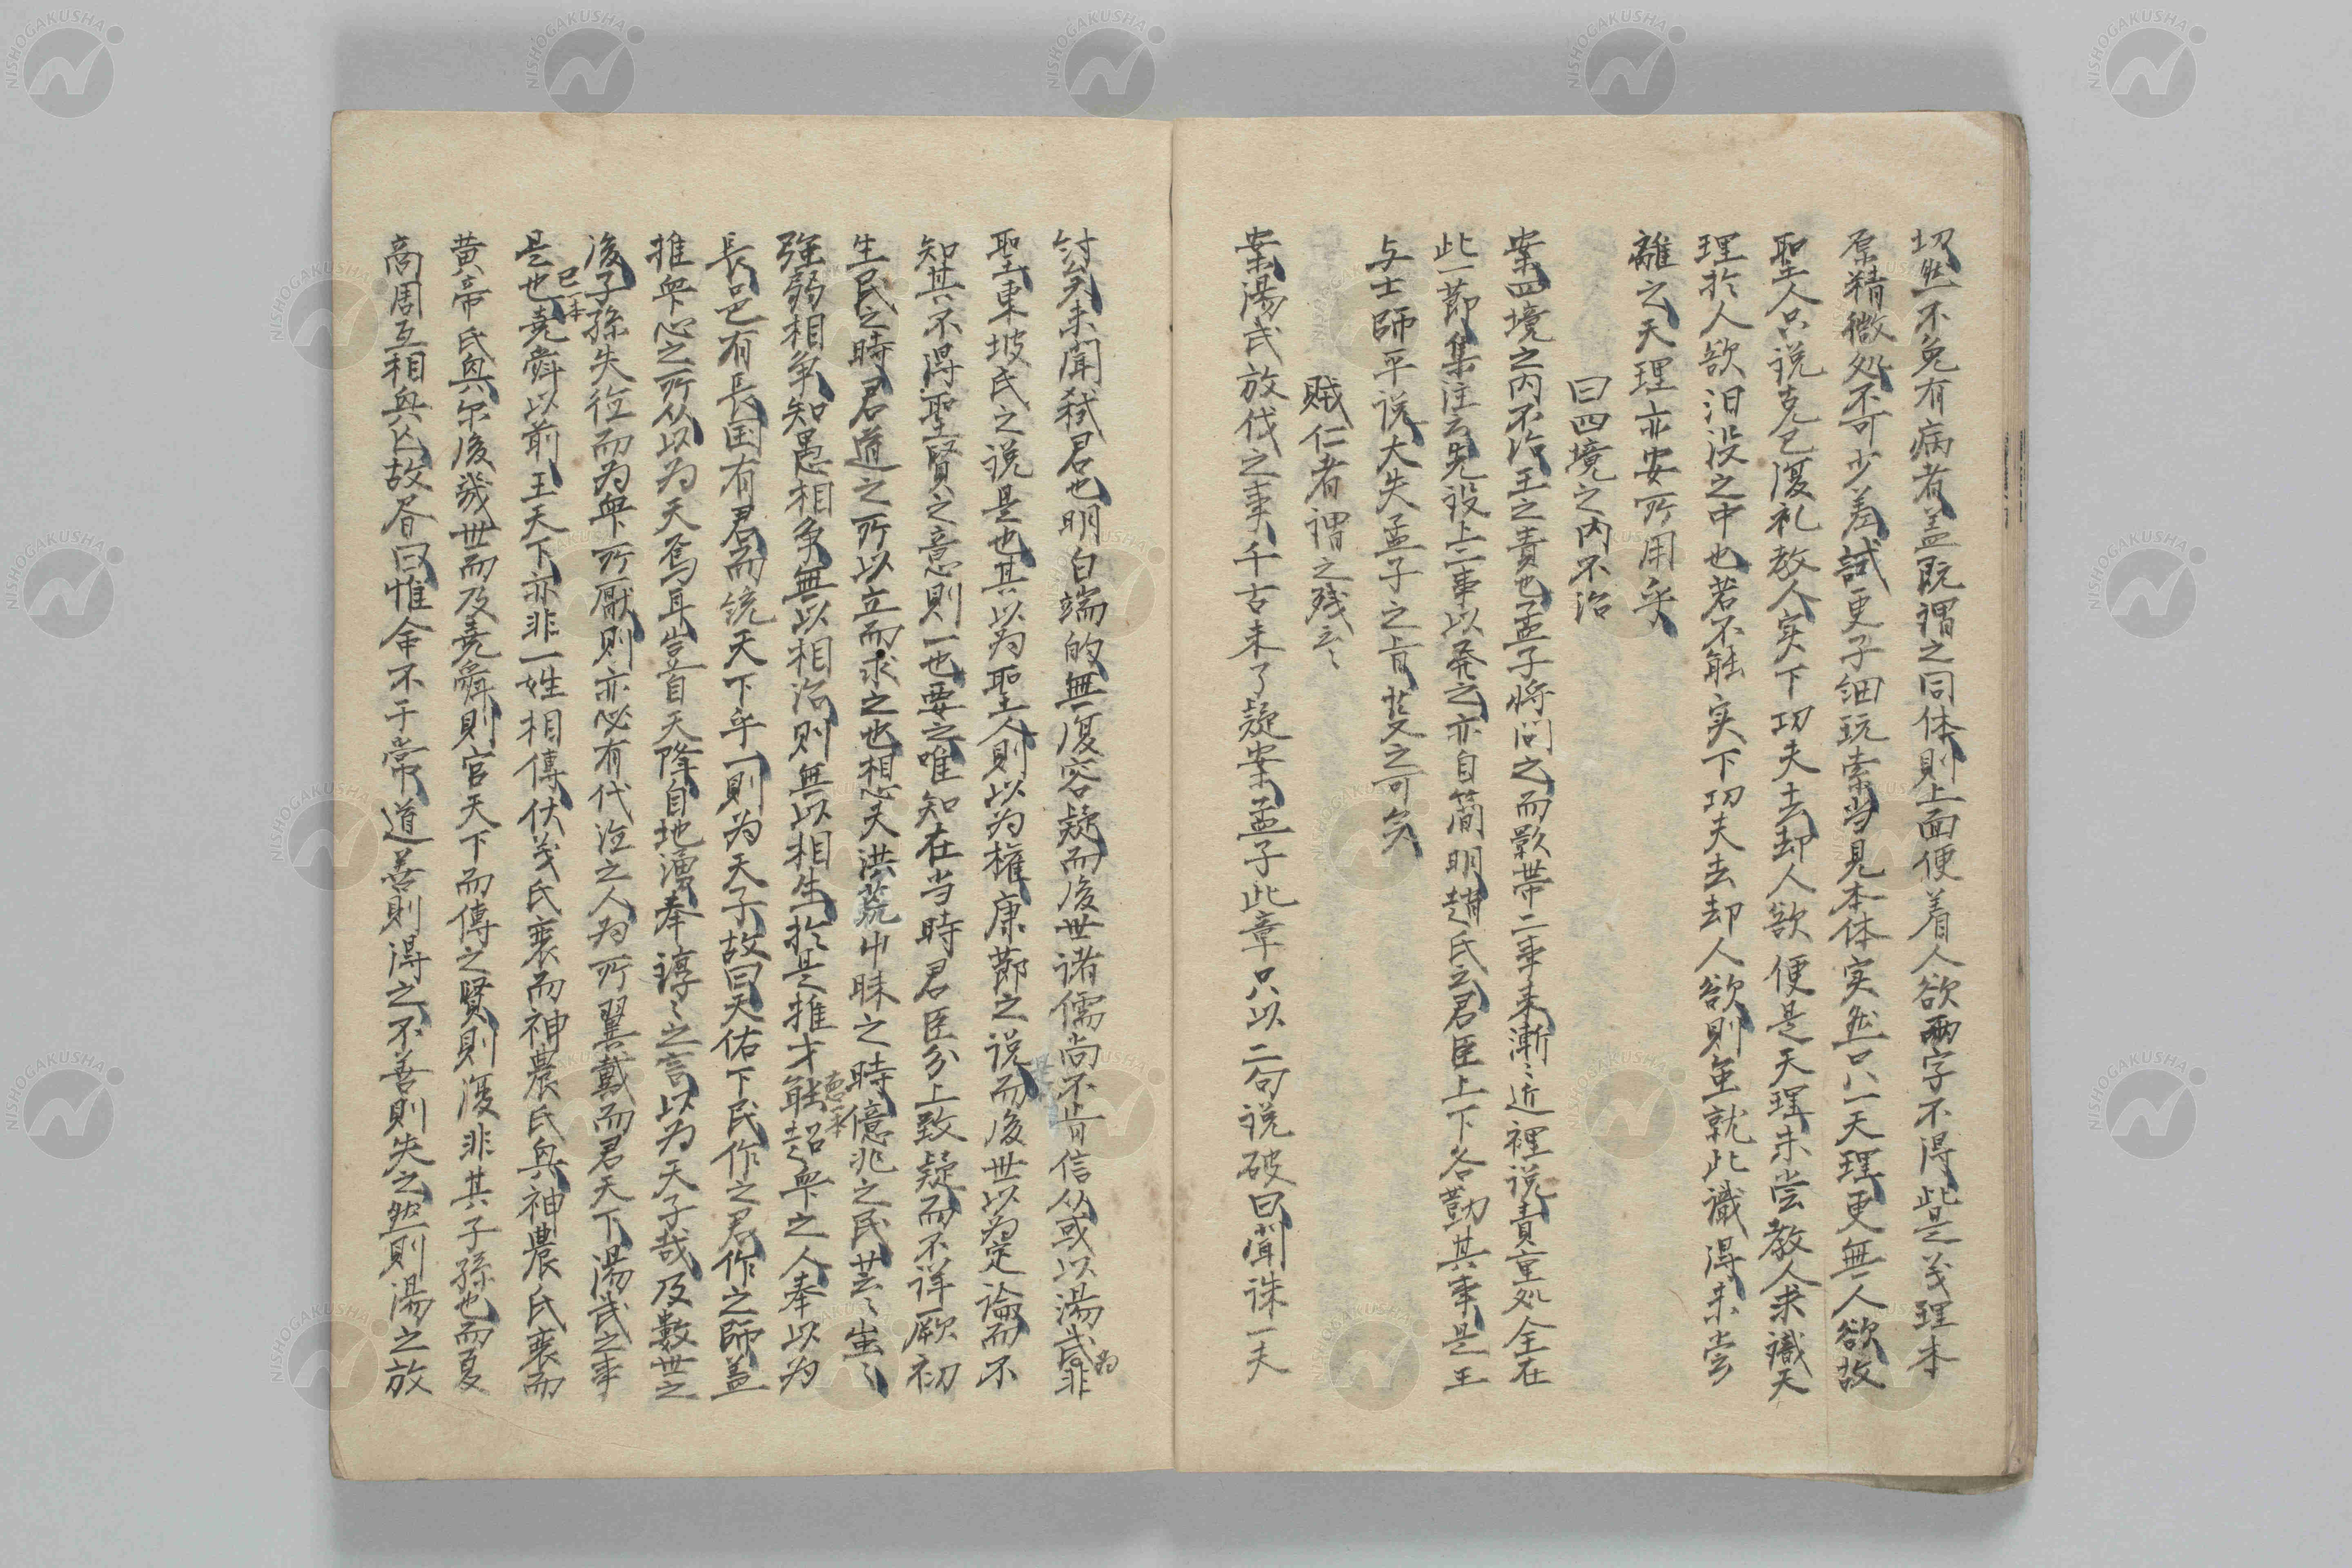 切然不免有病者蓋既謂之同体則上面便着人欲両字不得此是义理本
原精微処不可少差試更子細玩索当見本体实然只一天理更無人欲故
聖人只说克己復礼教人实下功夫去却人欲便是天理未尝教人求識天
理於人欲汨没之中也若不能实下功夫去却人欲則虽就此識得未尝
離之天理亦安所用乎
曰四境之内不治
案四境之内不治王之責也孟子將问之而歎帯二事来漸〻近裡说責重処全在
此一莭集注云先设上二事以発之亦自簡明趙氏云君臣上下各勤其事是王
与士師平说大失孟子之旨芟之可矣
賊仁者謂之残云〻
案湯武放伐之事千古未了疑案孟子此章只以二句说破曰聞誅一夫
紂矣未聞弑君也明白端的無復容疑而後世诸儒尚不肯信从或以湯武非
為
聖東坡氏之说是也其以為聖人則以為権康莭之说而後世以為定論而不
知其不得聖賢之意則一也要之唯知在当時君臣分上致疑而不详厥初
生民之時君道之所以立而求之也想夫洪荒屮昧之時億兆之民芸〻蚩〻
强弱相争知愚相争無以相治则無以相生於是推才能超衆之人奉以為
德一本
長邑有長国有君而统天下乎一則为天子故曰天佑下民作之君作之師蓋
推衆心之所从以为天焉耳豈自天降自地湧奉諄〻之言以为天子哉及數世之
後子孫失德而为衆所厭则亦必有代德之人为所翼戴而君天下湯武之事
是也尭舜以前王天下亦非一姓相傳伏羲氏衰而神農氏興神農氏衰而
已一本
黄帝氏興尔後幾世而及尭舜則官天下而傳之賢則復非其子孫也而夏
商周互相興亡故昏曰惟命不于常道善則得之不善則失之然則湯之放